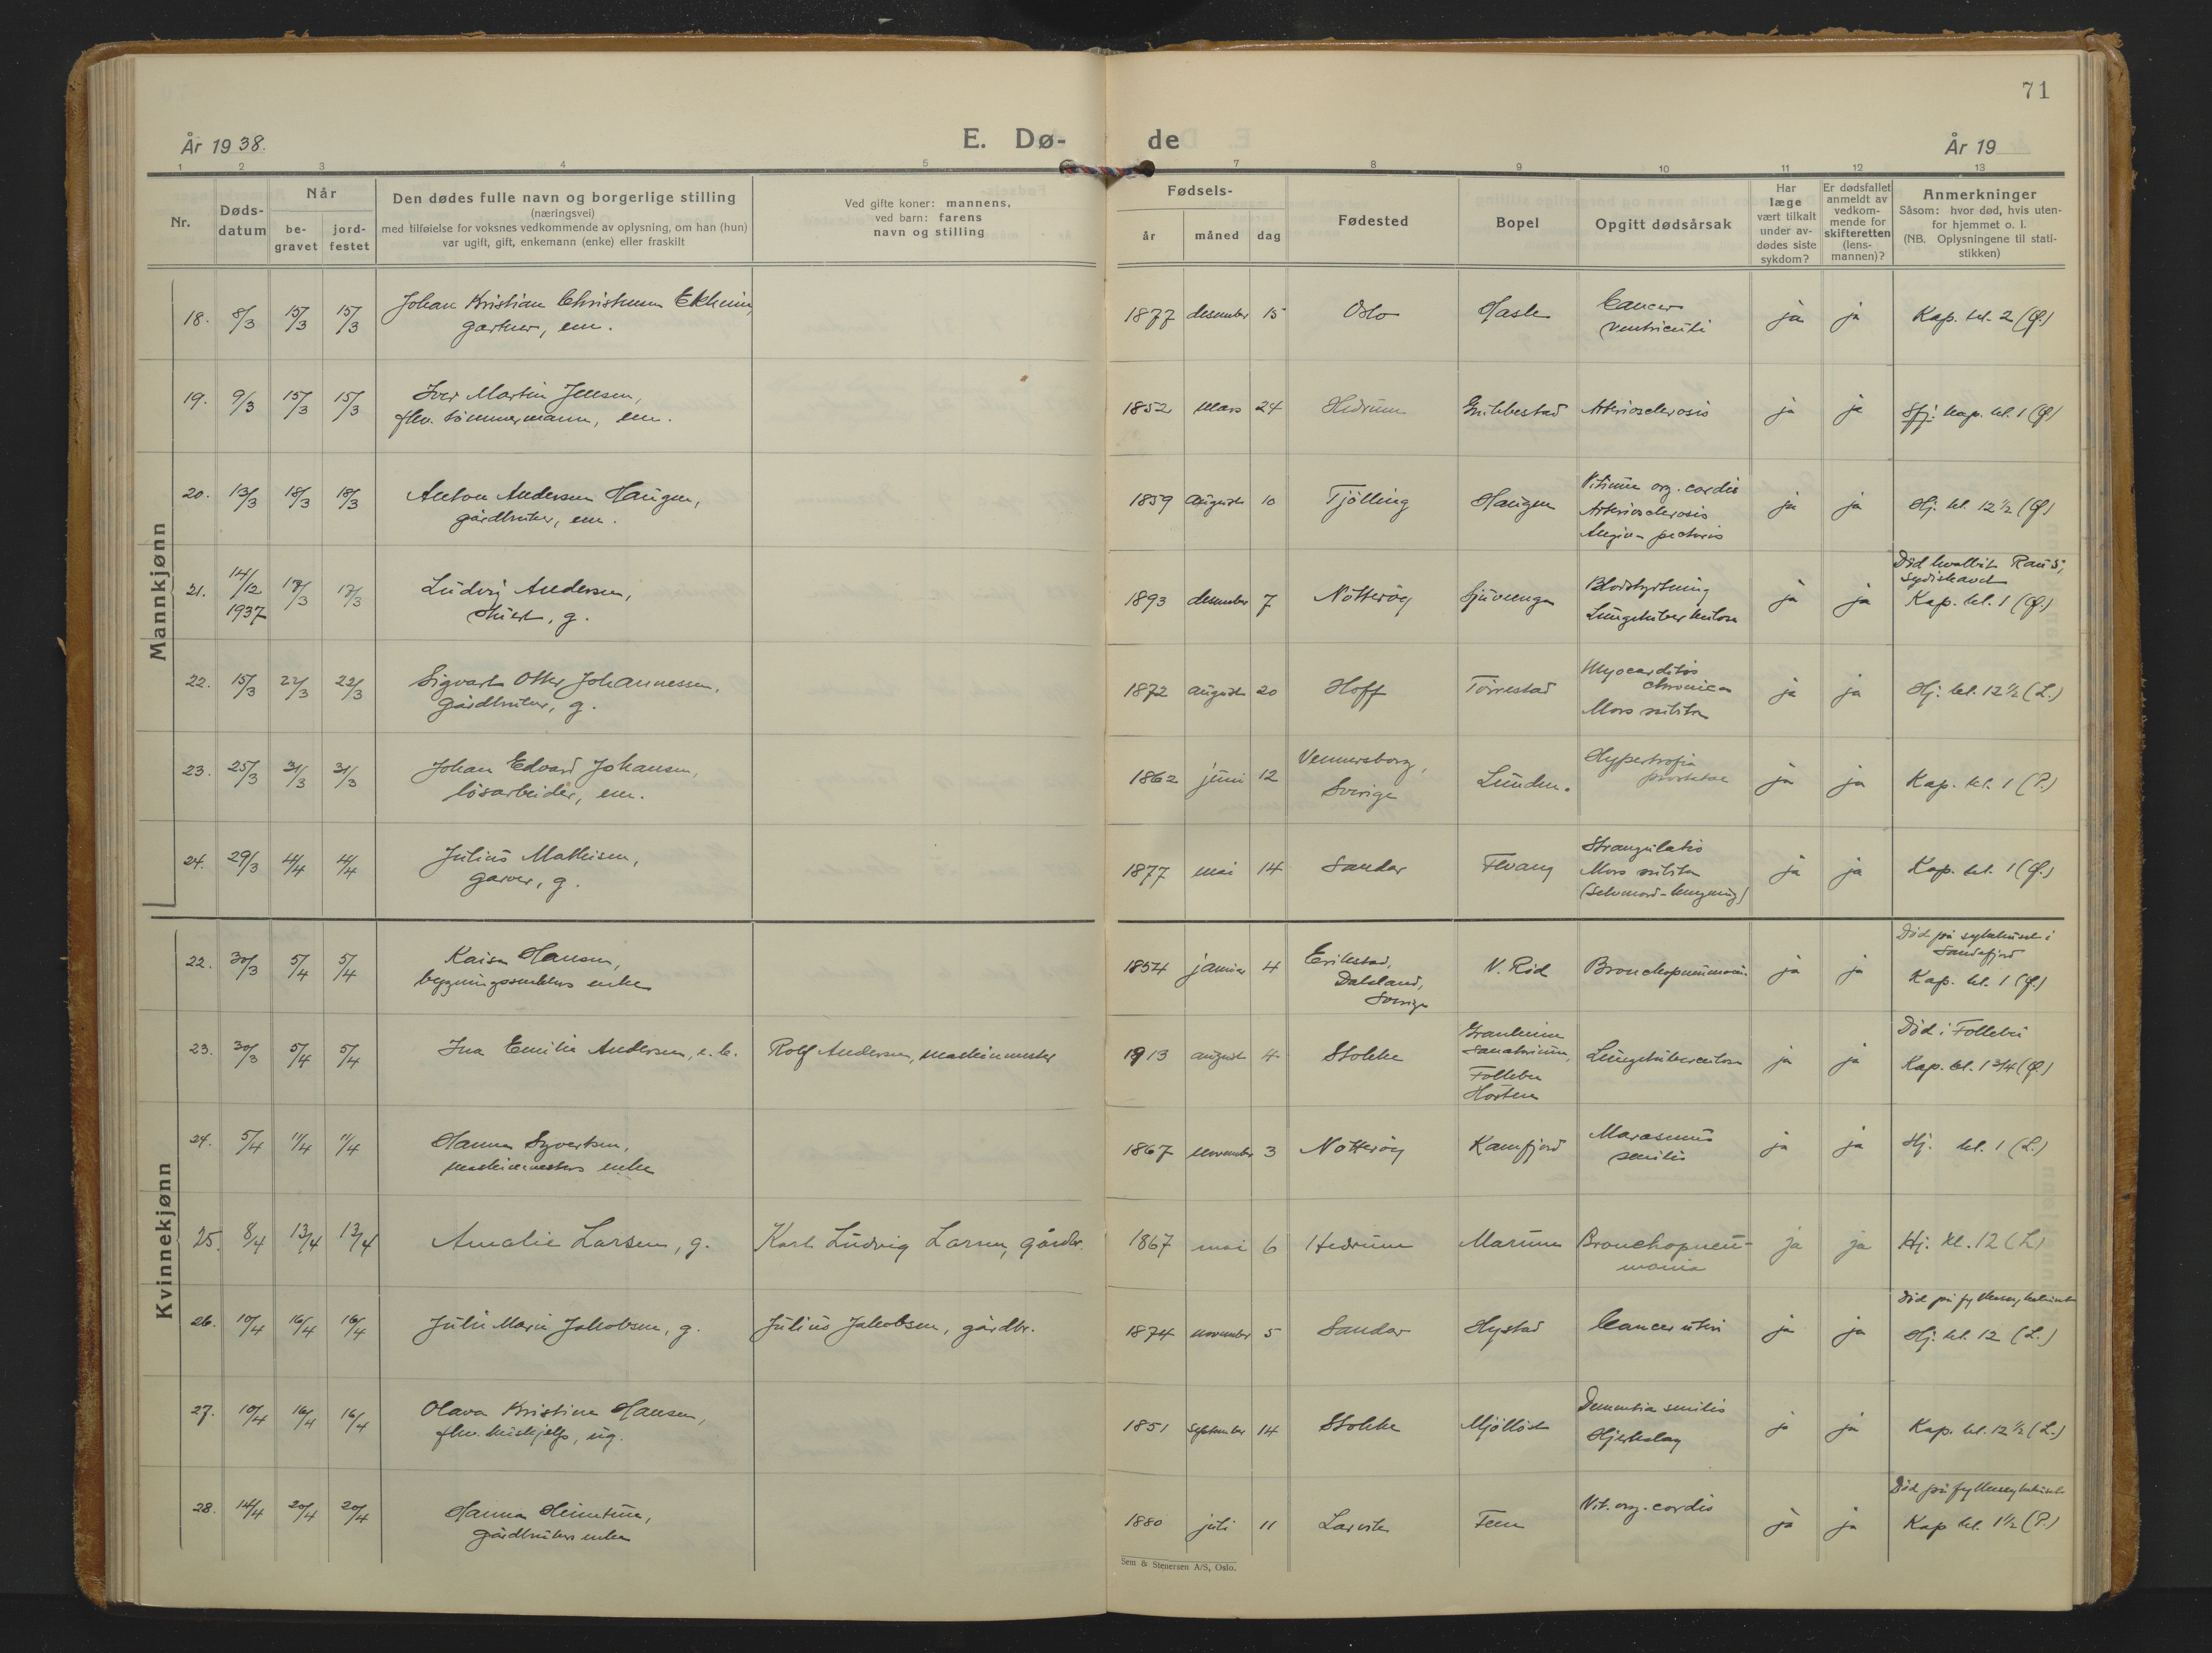 71
År 1938.
E. Dø- de
År 19
1 2 3 4 5 7 8 9 10 11 12 13
Nr.
Døds-
datum
Når
be-
gravet
jord-
festet
Den dødes fulle navn og borgerlige stilling
(næringsvei)
med tilføielse for voksnes vedkommende av oplysning, om han (hun)
var ugift, gift, enkemann (enke) eller fraskilt
Ved gifte koner: mannens,
ved barn: farens
navn og stilling
Fødsels-
år måned dag
Fødested
Bopel
Opgitt dødsårsak
Har
læge
vært tilkalt
under av-
dødes siste
sykdom?
Er dødsfallet
anmeldt av
vedkom-
mende for
skifteretten
(lens-
mannen)?
Anmerkninger
Såsom: hvor død, hvis uten-
for hjemmet o. l.
(NB. Oplysningene til stati-
stikken)
Mannkjønn
18. 8/3 15/3 15/3 Johan Kristian Christensen
gartner, em.
1877 desember 15 Oslo Hasle Cancer
ventriculi
ja ja Kap. kl. 2 (Ø.)
19. 9/3 15/3 15/3 Iver Martin Jensen,
fhv. tømmermann, em.
1852 mars 24 Hedrum Gubbestad Arteriosclerosis ja ja Sfj. kap. kl. 1 (Ø)
20. 13/3 18/3 18/3 Anton Andersen Haugen,
gårdbruker, em.
1859 august 10 Tjölling Haugen Vitium org. cordis
Arteriosclerosis
Angina pectoris
ja ja Hj. kl. 12½ (Ø)
21. 14/12
1937
17/3 17/3 Ludvig Andersen,
stuert, g.
1893 desember 7 Nötteröy Sjuvenga Blodstyrtning
Lungetuberkulose
ja ja Död
Sydishavet
Kap. kl. 1 (Ø.)
22. 15/3 22/3 22/3 Sigvart Otto Johannessen,
gårdbruker, g.
1872 august 20 Hoff Torrestad Myocarditis
chronica
Mors subita
ja ja Hj. kl. 12½ (L.)
23. 25/3 31/3 31/3 Johan Edvard Johansen,
lösarbeider, em.
1862 juni 12 Vennersborg,
Sverige
Lunden. Hypertrofia
prostatae
ja ja Kap. kl. 1 (P.)
24. 29/3 4/4 4/4 Julius Mathisen,
garver, g.
1877 mai 14 Sandar Fevang Strangulatio
Mors subita
(Selvmord-hengning)
ja ja Kap. kl. 1 (Ø.)
Kvinnekjønn
22. 30/3 5/4 5/4 Kaisa Hansen,
bygningssnekkers enke
1854 januar 4 Erikstad,
Dalsland,
Sverige
V. Röd Bronchopneumoni ja ja Död på sykehuset i
Sandefjord
Kap. kl. 1 (Ø)
23. 30/3 5/4 5/4 Ina Emilie Andersen, Rolf Andersen, maskinmester
1913 august 4 Stokke Granheim
Sanatorium,
Follebu
Horten
Lungetuberculose ja ja Död i Follebu
Kap. kl. 1 3/4 (Ø)
24. 5/4 11/4 11/4 Hanna Syvertsen,
maskinmesters enke
1867 november 3 Nötteröy Kamfjord Marasmus
senilis
ja ja Hj. kl. 1 (L.)
25. 8/4 13/4 13/4 Amalie Larsen, g. Karl Ludvig Larsen, gårdbr.
1867 mai 6 Hedrum Marum Bronchopneu-
monia
ja ja Hj. kl. 12 (L)
26. 10/4 16/4 16/4 Julie Marie Jakobsen, g. Julius Jakobsen, gårdbr.
1874 november 5 Sandar Hystad Cancer uteri ja ja Död på fylkessykehuset
Hj. kl. 12 (L.)
27. 10/4 16/4 16/4 Olava Kristine Hansen,
fhv. hushjelp, ug.
1851 September 14 Stokke Mjöllöst Dementia senilis
Hjerteslag
ja ja Kap. kl. 12½ (L.)
28. 14/4 20/4 20/4 Hanna Heimtun,
gårdbrukers enke
1880 juli 11 Larvik Fen Vit. org. cordis ja ja Död på fylkessykehuset
Kap kl. 1½ (P.)
Sem & Stenersen A/S, Oslo.